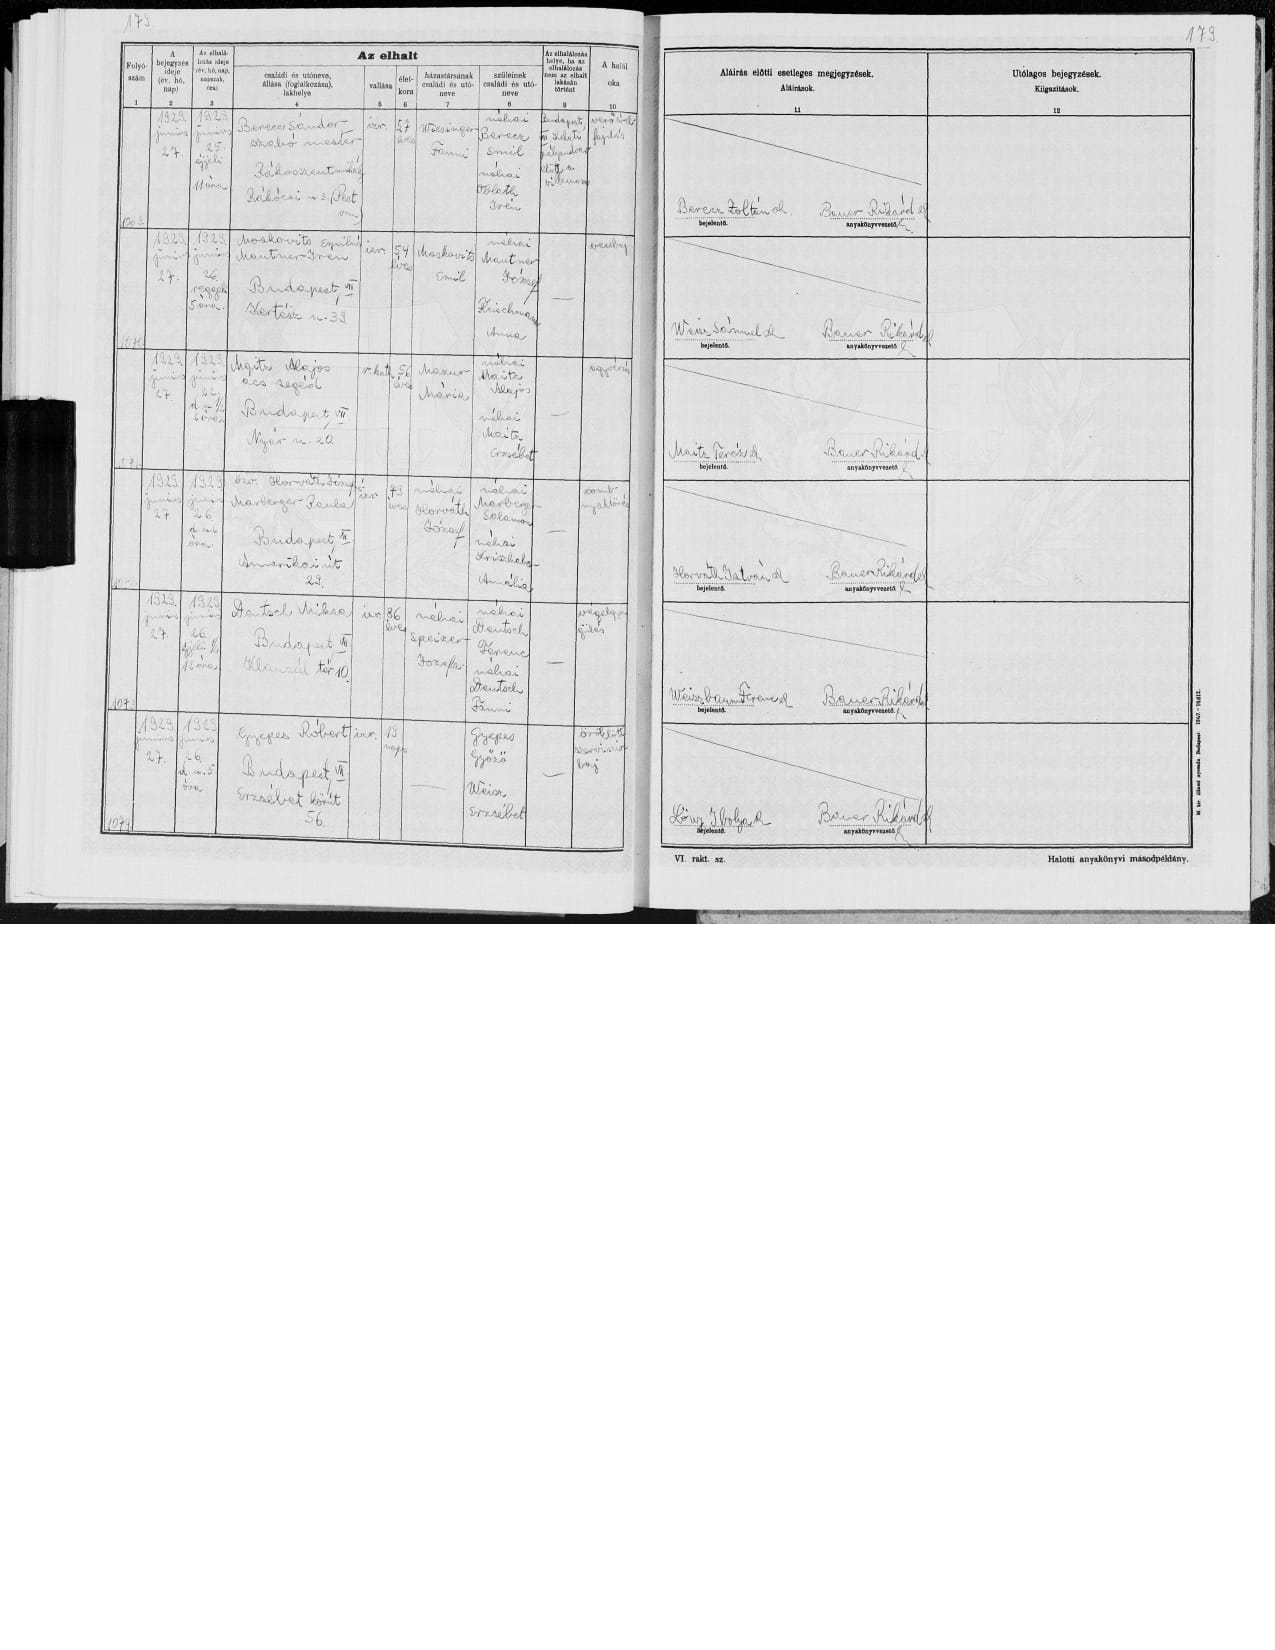 173.
Az elhalt
Folyó-
szám
A
bejegyzés
ideje
(év, hó,
nap)
Az elhalá-
lozás ideje
(év, hó, nap,
napszak,
óra)
családi és utóneve,
állása (foglalkozása),
lakhelye
vallása
élet-
kora
házastársának
családi és utó-
neve
szüleinek
családi és utó-
neve
Az elhalálozás
helye, ha az
elhalálozás
nem az elhalt
lakásán
történt
A halál
oka
1
2
3
4
5
6
7
8
9
10
1929
junius
27.
1929
junius
25.
éjjeli
11 óra
Berecz Sándor
szabó mester
Rákosszentmihály
Rákóczi u. 3. (Pest
vm.)
izr.
57
éves
Wiesinger
Fanni
néhai
Berecz
Emil
néhai
Oblath
Irén
Budapest,
VII Keleti
pályaudvar
előtt a
villamoson
1069.
1929
junius
27.
1929
junius
26.
reggeli
5 óra.
Moskovits Emilné
Mautner Irén
Budapest, VII
Kertész u. 39.
izr.
54
éves
Moskovits
Emil
néhai
Mautner
József
Anna
vesebaj
1070.
1929
junius
27
1929
junius
Maitz Alajos
ács segéd
Budapest, VII
Nyár u. 20.
r. kath.
56
éves
Mazur
Mária
néhai
Maitz
Alajos
néhai
Maitz
Erzsébet
agyvérzés
1929
junius
27
1929
junius
26.
óra.
özv. Horváth Józsefné
Marberger Paula
Budapest, VII
Amerikai út
29.
izr.
79
éves
néhai
Horváth
József
néhai
Marberger
Salamon
néhai
Amália
comb-
nyaktörés
1929.
junius
27.
1929
junius
26.
éjjeli ½
12 óra
Deutsch Miksa
Budapest VII
Klauzál tér 10.
izr.
86
éves
néhai
Speizer
Jozefa
néhai
Deutsch
Ferenc
néhai
Deutsch
Fanni
végelgyen-
gülés
1073
1929
junius
27.
1929
junius
26.
d. u. 5
óra
Gyepes Róbert
Budapest, VII
Erzsébet körút
56.
izr.
19
napos
Gyepes
Győző
Weisz
Erzsébet
baj
1074
179.
Aláírás előtti esetleges megjegyzések.
Aláírások.
11
Utólagos bejegyzések.
Kiigazítások.
12
Berecz Zoltán Bauer Rikárd
bejelentő. anyakönyvvezető.
Weisz Sámuel Bauer Rikárd
bejelentő. anyakönyvvezető
Maitz Teréz Bauer Rikárd
bejelentő. anyakönyvvezető
Horváth István Bauer Rikárd
bejelentő. anyakönyvvezető
Weiszbaum Ferenc Bauer Rikárd
bejelentő. anyakönyvvezető
Lőwy Ibolya Bauer Rikárd
bejelentő. anyakönyvvezető
VI. rakt. sz.
Halotti anyakönyvi másodpéldány.